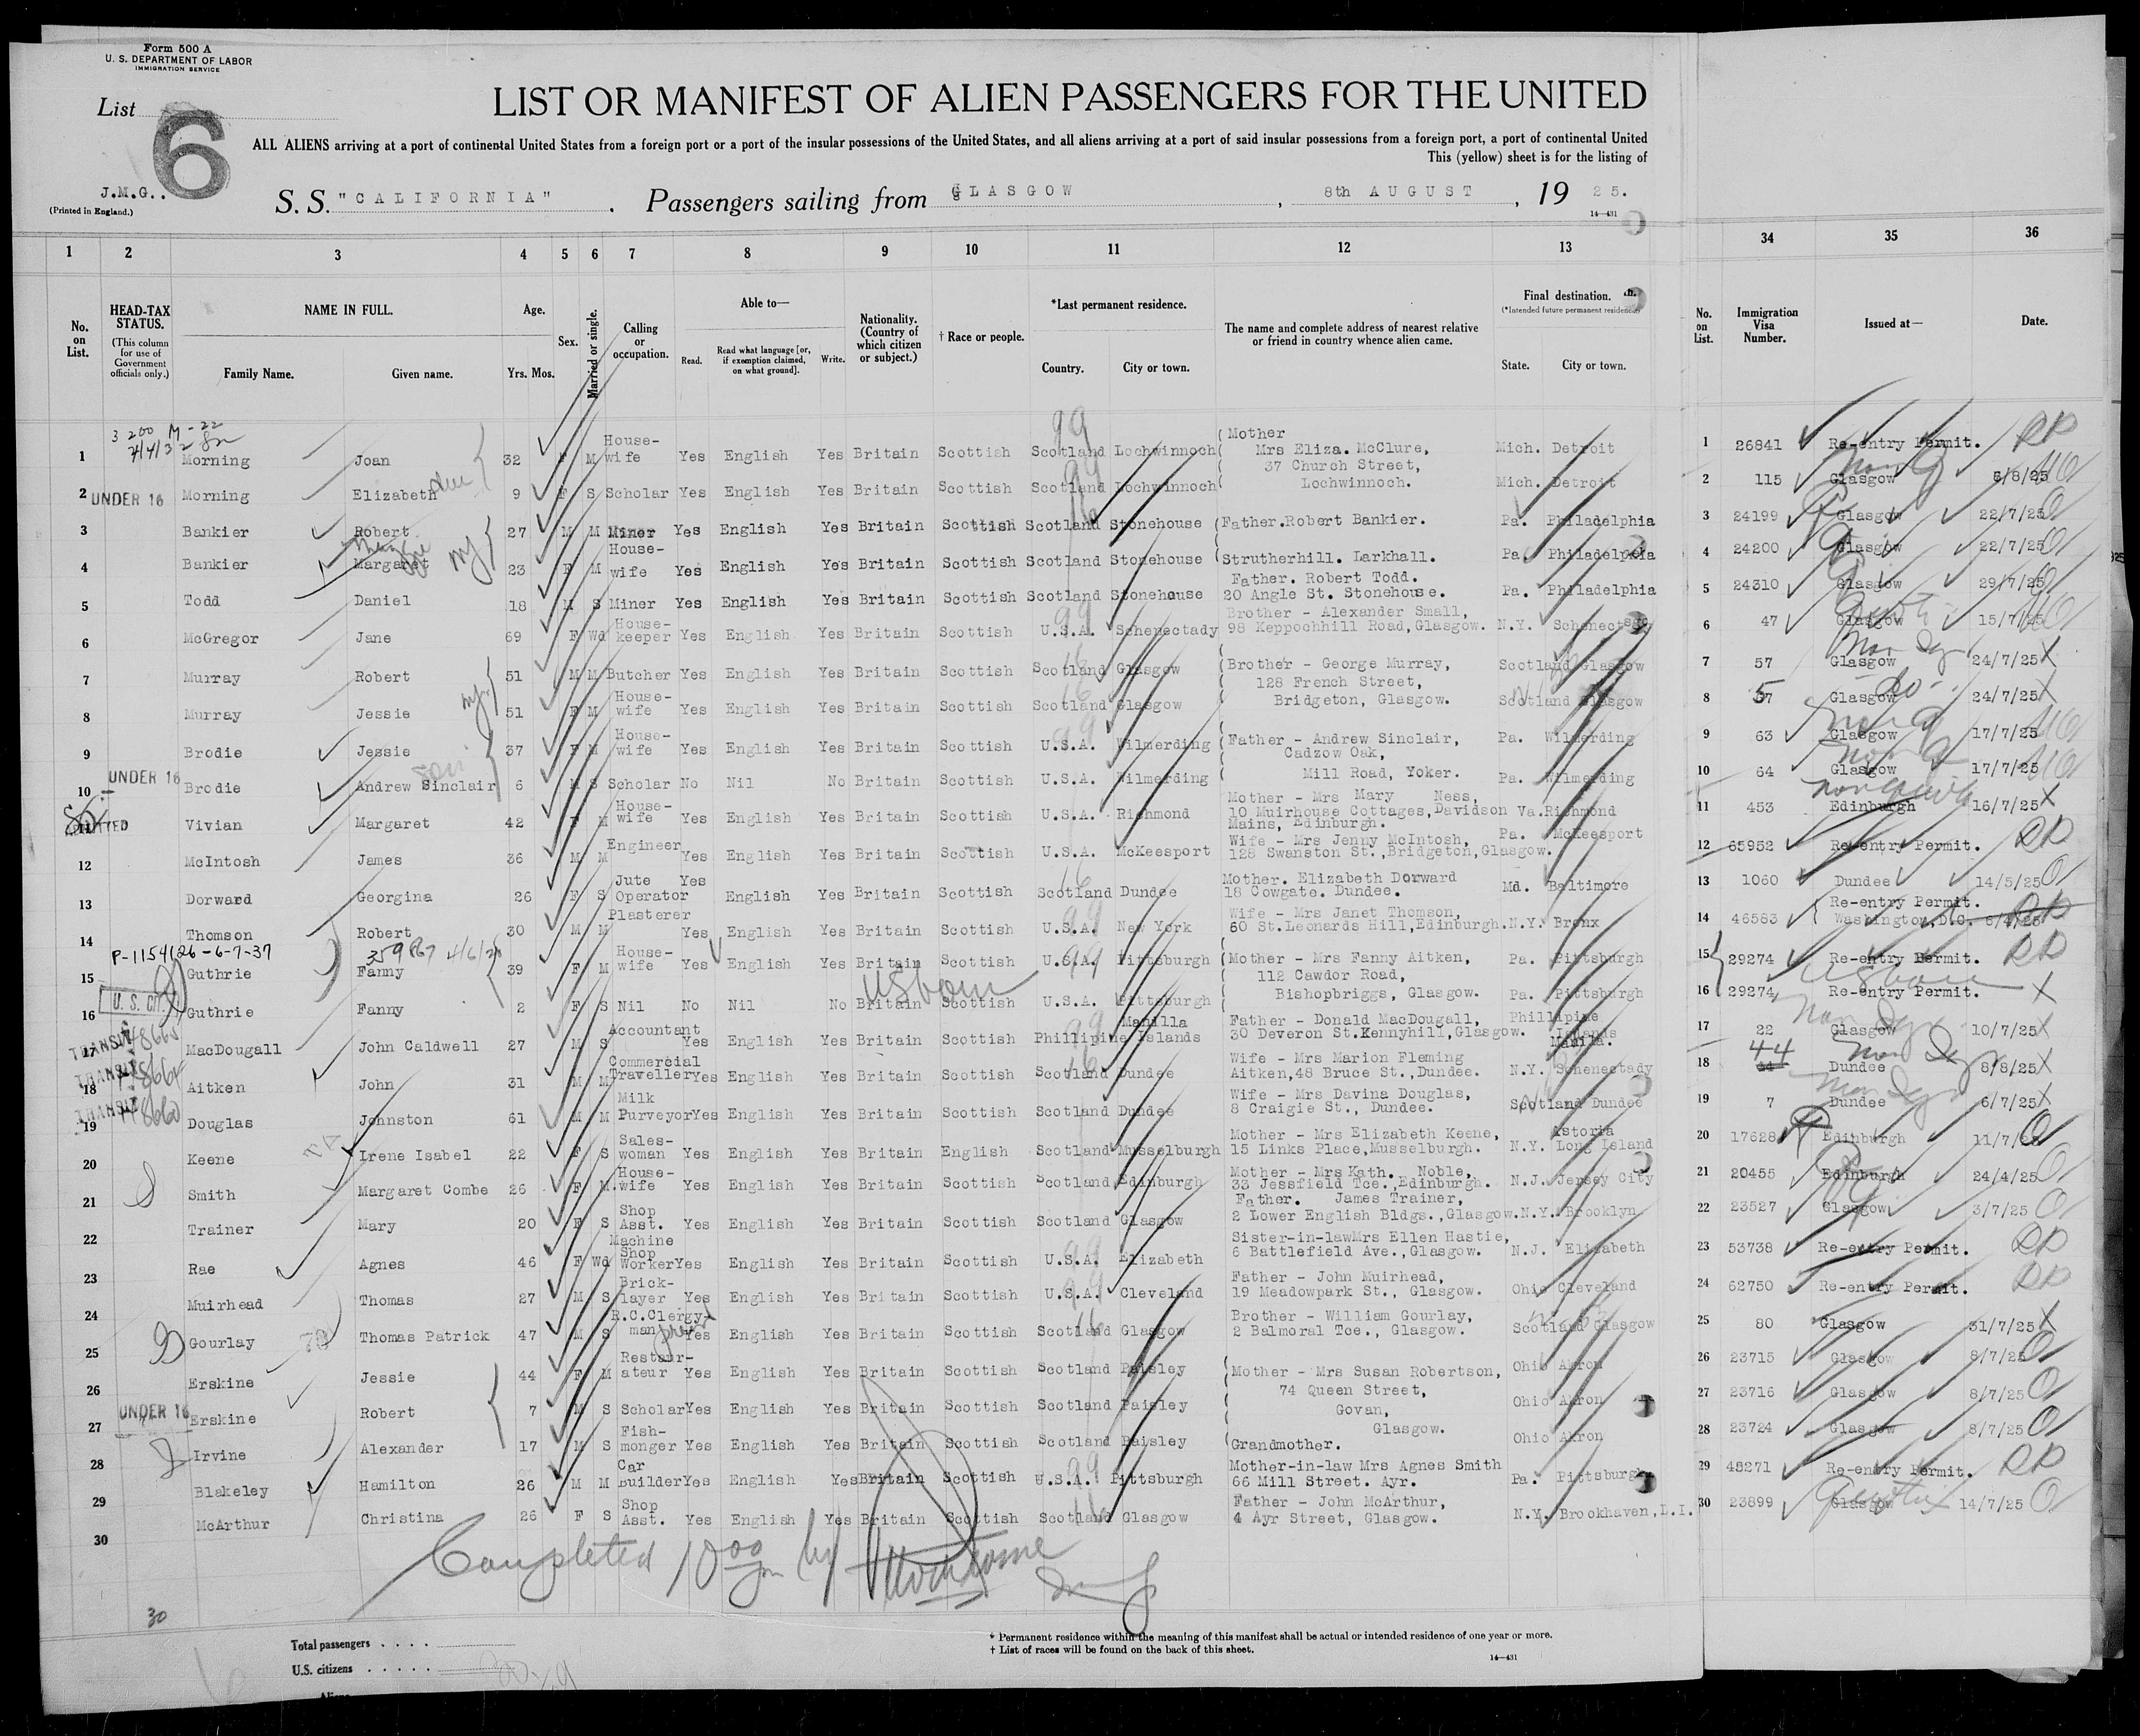 Form 500 A
U. S. DEPARTMENT OF LABOR
IMMIGRATION SERVICE
List
6
LIST OR MANIFEST OF ALIEN PASSENGERS FOR THE UNITED
ALL ALIENS arriving at a port of continental United States from a foreign port or a port of the insular possessions of the United States, and all aliens arriving at a port of said insular possessions from a foreign port, a port of continental United
This (yellow) sheet is for the listing of
J.M.G..
(Printed in England.)
S. S. "CALIFORNIA" . Passengers sailing from GLASGOW , 8th AUGUST , 19 25.
14—431
1 2 3 4 5 6 7 8 9 10 11 12 13 34 35 36
No. on List.
HEAD-TAX STATUS.
(This column for use of Government officials only.)
NAME IN FULL.
Family Name. Given name.
Age.
Yrs. Mos.
Sex.
Married or single.
Calling or occupation.
Able to—
Read. Read what language [or, if exemption claimed, on what ground]. Write.
Nationality. (Country of which citizen or subject.)
† Race or people.
*Last permanent residence.
Country. City or town.
The name and complete address of nearest relative or friend in country whence alien came.
Final destination.
(*Intended future permanent residence)
State. City or town.
No. on List.
Immigration Visa Number.
Issued at—
Date.
1 Morning Joan 32 F M House-wife Yes English Yes Britain Scottish Scotland Lochwinnoch Mother Mrs Eliza. McClure, 37 Church Street, Lochwinnoch. Mich. Detroit 1 26841 Re-entry Permit. RP
2 UNDER 16 Morning Elizabeth 9 F S Scholar Yes English Yes Britain Scottish Scotland Lochwinnoch Mich. Detroit 2 115 Glasgow 6/8/25
3 Bankier Robert 27 M M Miner Yes English Yes Britain Scottish Scotland Stonehouse Father.Robert Bankier. Pa. Philadelphia 3 24199 Glasgow 22/7/25
4 Bankier Margaret 23 F M House-wife Yes English Yes Britain Scottish Scotland Stonehouse Strutherhill. Larkhall. Pa. Philadelphia 4 24200 Glasgow 22/7/25
5 Todd Daniel 18 M S Miner Yes English Yes Britain Scottish Scotland Stonehouse Father. Robert Todd. 20 Angle St. Stonehouse. Pa. Philadelphia 5 24310 Glasgow 29/7/25
6 McGregor Jane 69 F Wd House-keeper Yes English Yes Britain Scottish U.S.A. Schenectady Brother - Alexander Small, 98 Keppochhill Road,Glasgow. N.Y. Schenectady 6 47 Glasgow 15/7/25
7 Murray Robert 51 M M Butcher Yes English Yes Britain Scottish Scotland Glasgow Brother - George Murray, 128 French Street, Bridgeton, Glasgow. Scotland Glasgow 7 57 Glasgow 24/7/25
8 Murray Jessie 51 F M House-wife Yes English Yes Britain Scottish Scotland Glasgow Scotland Glasgow 8 57 Glasgow 24/7/25
9 Brodie Jessie 37 F M House-wife Yes English Yes Britain Scottish U.S.A. Wilmerding Father - Andrew Sinclair, Cadzow Oak, Mill Road, Yoker. Pa. Wilmerding 9 63 Glasgow 17/7/25
10 UNDER 16 Brodie Andrew Sinclair 6 M S Scholar No Nil No Britain Scottish U.S.A. Wilmerding Pa. Wilmerding 10 64 Glasgow 17/7/25
11 Vivian Margaret 42 F M House-wife Yes English Yes Britain Scottish U.S.A. Richmond Mother - Mrs Mary Ness, 10 Muirhouse Cottages,Davidson Mains, Edinburgh. Va.Richmond 11 453 Edinburgh 16/7/25
12 McIntosh James 36 M M Engineer Yes English Yes Britain Scottish U.S.A. McKeesport Wife - Mrs Jenny McIntosh, 128 Swanston St.,Bridgeton,Glasgow. Pa. McKeesport 12 65952 Re-entry Permit. RP
13 Dorward Georgina 26 F S Jute Operator Yes English Yes Britain Scottish Scotland Dundee Mother. Elizabeth Dorward 18 Cowgate. Dundee. Md. Baltimore 13 1060 Dundee 14/5/25
14 Thomson Robert 30 M M Plasterer Yes English Yes Britain Scottish U.S.A. New York Wife - Mrs Janet Thomson, 60 St.Leonards Hill,Edinburgh. N.Y. Bronx 14 46563 Re-entry Permit. Washington,D.C. 6/4/25 RP
P-1154126-6-7-37
15 Guthrie Fanny 39 F M House-wife Yes English Yes Britain Scottish U.S.A. Pittsburgh Mother - Mrs Fanny Aitken, 112 Cawdor Road, Bishopbriggs, Glasgow. Pa. Pittsburgh 15 29274 Re-entry Permit. RP
16 U. S. CIT. Guthrie Fanny 2 F S Nil No Nil No Britain Scottish U.S.A. Pittsburgh US born Pa. Pittsburgh 16 29274 Re-entry Permit. US born
17 TRANSIT MacDougall John Caldwell 27 M S Accountant Yes English Yes Britain Scottish Phillipine Islands Manilla Father - Donald MacDougall, 30 Deveron St.Kennyhill,Glasgow. Phillipine Islands Manila. 17 22 Glasgow 10/7/25
18 TRANSIT Aitken John 31 M M Commercial Traveller Yes English Yes Britain Scottish Scotland Dundee Wife - Mrs Marion Fleming Aitken,48 Bruce St.,Dundee. N.Y. Schenectady 18 44 Dundee 8/8/25
19 TRANSIT Douglas Johnston 61 M M Milk Purveyor Yes English Yes Britain Scottish Scotland Dundee Wife - Mrs Davina Douglas, 8 Craigie St., Dundee. Scotland Dundee 19 7 Dundee 6/7/25
20 Keene Irene Isabel 22 F S Sales-woman Yes English Yes Britain English Scotland Musselburgh Mother - Mrs Elizabeth Keene, 15 Links Place,Musselburgh. N.Y. Astoria Long Island 20 17628 Edinburgh 11/7/25
21 Smith Margaret Combe 26 F M. House-wife Yes English Yes Britain Scottish Scotland Edinburgh Mother - Mrs Kath. Noble, 33 Jessfield Tce.,Edinburgh. N.J. Jersey City 21 20455 Edinburgh 24/4/25
22 Trainer Mary 20 F S Shop Asst. Yes English Yes Britain Scottish Scotland Glasgow Father. James Trainer, 2 Lower English Bldgs.,Glasgow. N.Y. Brooklyn 22 23527 Glasgow 3/7/25
23 Rae Agnes 46 F Wd Machine Shop Worker Yes English Yes Britain Scottish U.S.A. Elizabeth Sister-in-lawMrs Ellen Hastie, 6 Battlefield Ave.,Glasgow. N.J. Elizabeth 23 53738 Re-entry Permit. RP
24 Muirhead Thomas 27 M S Brick-layer Yes English Yes Britain Scottish U.S.A. Cleveland Father - John Muirhead, 19 Meadowpark St., Glasgow. Ohio Cleveland 24 62750 Re-entry Permit. RP
25 Gourlay Thomas Patrick 47 M S R.C.Clergy-man priest Yes English Yes Britain Scottish Scotland Glasgow Brother - William Gourlay, 2 Balmoral Tce., Glasgow. Scotland Glasgow 25 80 Glasgow 31/7/25
26 Erskine Jessie 44 F M Restaur-ateur Yes English Yes Britain Scottish Scotland Paisley Mother - Mrs Susan Robertson, 74 Queen Street, Govan, Glasgow. Ohio Akron 26 23715 Glasgow 8/7/25
27 UNDER 16 Erskine Robert 7 M S Scholar Yes English Yes Britain Scottish Scotland Paisley Ohio Akron 27 23716 Glasgow 8/7/25
28 Irvine Alexander 17 M S Fish-monger Yes English Yes Britain Scottish Scotland Paisley Grandmother. Ohio Akron 28 23724 Glasgow 8/7/25
29 Blakeley Hamilton 26 M M Car Builder Yes English Yes Britain Scottish U.S.A. Pittsburgh Mother-in-law Mrs Agnes Smith 66 Mill Street. Ayr. Pa. Pittsburgh 29 48271 Re-entry Permit. RP
30 McArthur Christina 26 F S Shop Asst. Yes English Yes Britain Scottish Scotland Glasgow Father - John McArthur, 4 Ayr Street, Glasgow. N.Y. Brookhaven,L.I. 30 23899 Glasgow 14/7/25
Completed 10 00 by
30
Total passengers . . . .
U.S. citizens . . . . .
Aliens
* Permanent residence within the meaning of this manifest shall be actual or intended residence of one year or more.
† List of races will be found on the back of this sheet.
14—431